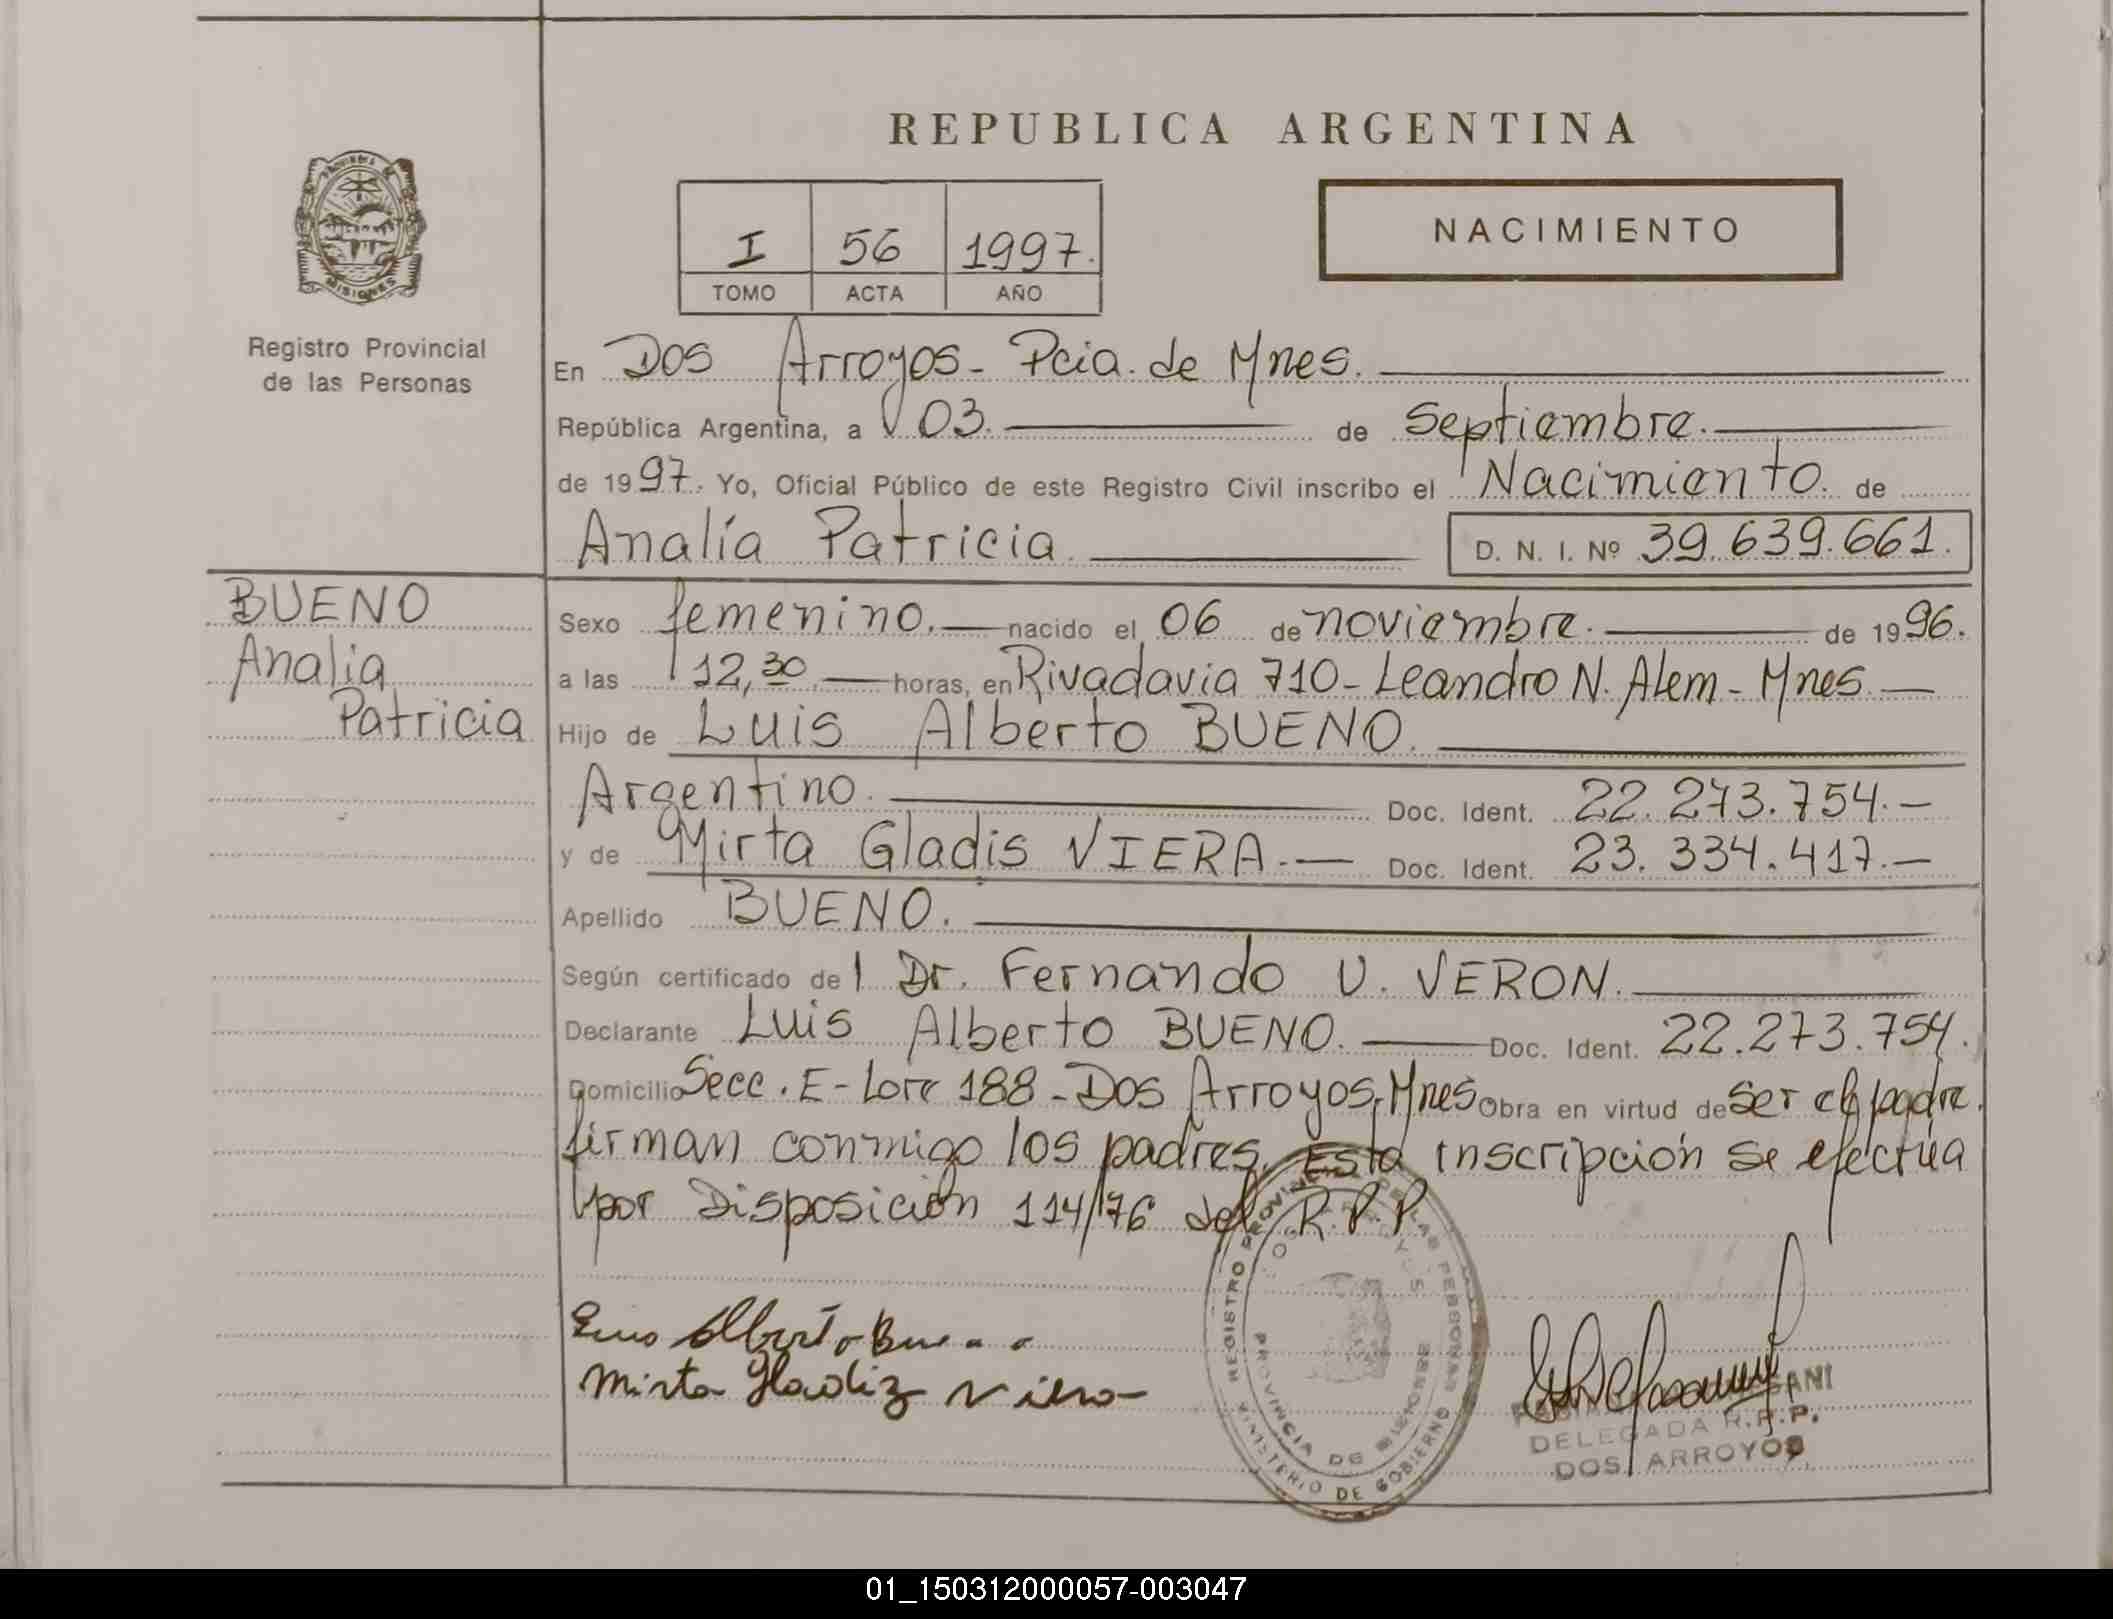 REPUBLICA ARGENTINA
PROVINCIA DE
MISIONES
Registro Provincial
de las Personas
I 56 1997.
TOMO ACTA AÑO
NACIMIENTO
En Dos Arroyos - Pcia. de Mnes.
República Argentina, a 03. de Septiembre.
de 1997. Yo, Oficial Público de este Registro Civil inscribo el Nacimiento. de
Analía Patricia. D. N. I. Nº 39.639.661.
BUENO
Analia
Patricia
Sexo femenino. nacido el 06 de noviembre. de 1996.
a las 12,30 horas, en Rivadavia 710 - Leandro N. Alem - Mnes.
Hijo de Luis Alberto BUENO.
Argentino. Doc. Ident. 22.273.754.-
y de Mirta Gladis VIERA.- Doc. Ident. 23.334.417.-
Apellido BUENO.
Según certificado de l Dr. Fernando U. VERON.
Declarante Luis Alberto BUENO. Doc. Ident. 22.273.754.
Domicilio Secc. E - Lote 188 - Dos Arroyos, Mnes Obra en virtud de ser el padre.
firman conmigo los padres. Esta inscripción se efectúa
por Disposición 114/76 del R.P.P
REGISTRO PROVINCIAL DE LAS PERSONAS
MINISTERIO DE GOBIERNO
DOS ARROYOS
PROVINCIA DE MISIONES
Luis Alberto Bueno
Mirta Gladiz Viera
DELEGADA R.P.P.
DOS ARROYOS
01_150312000057-003047